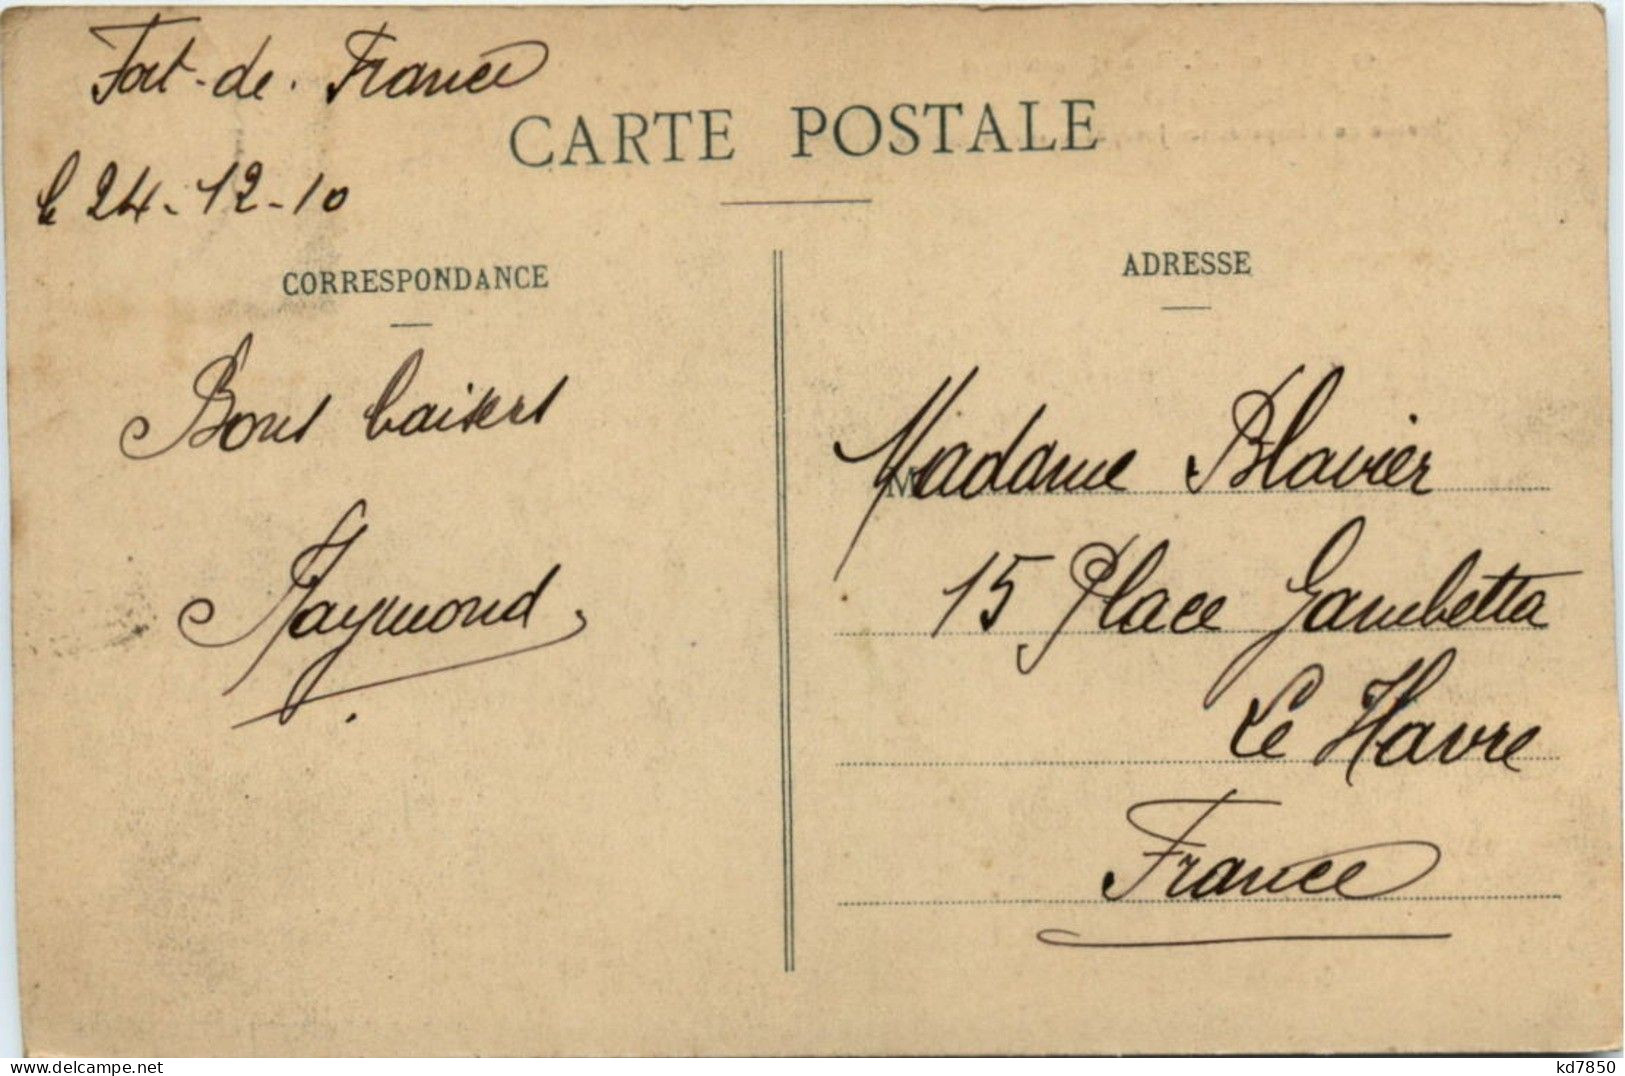 Fort-de-France
CARTE POSTALE
le 24-12-10
CORRESPONDANCE
ADRESSE
Bons baisers
Raymond
M
Madame Blavier
15 Place Gambetta
Le Havre
France
kd7850